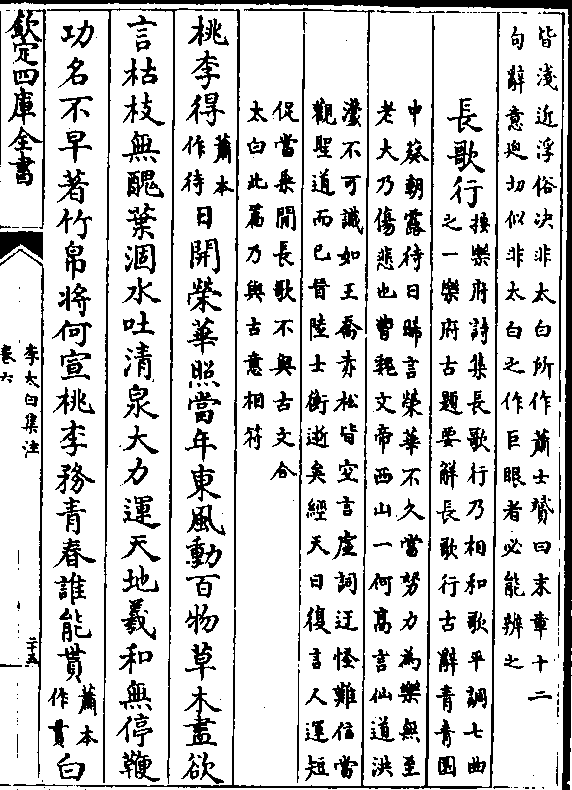 皆淺近浮俗決非太白所作蕭士贇曰末章十二
句辭意迫切似非太白之作巨眼者必能辨之
長歌行按樂府詩集長歌行乃相和歌平調七曲
之一樂府古題要解長歌行古辭青青園
中葵朝露待日晞言榮華不久當努力為樂無至
老大乃傷悲也曹魏文帝西山一何高言仙道洪
濛不可識如王喬赤松皆空言虛詞迂怪難信當
觀聖道而已晉陸士衡逝矣經天日復言人運短
促當乘閒長歌不與古文合
太白此篇乃與古意相符
桃李得蕭本作待日開榮華照當年東風動百物草木盡欲
言枯枝無醜葉涸水吐清泉大力運天地羲和無停鞭
功名不早著竹帛將何宣桃李務青春誰能貫蕭本作貰白
欽定四庫全書
李太白集注
卷六
二十五